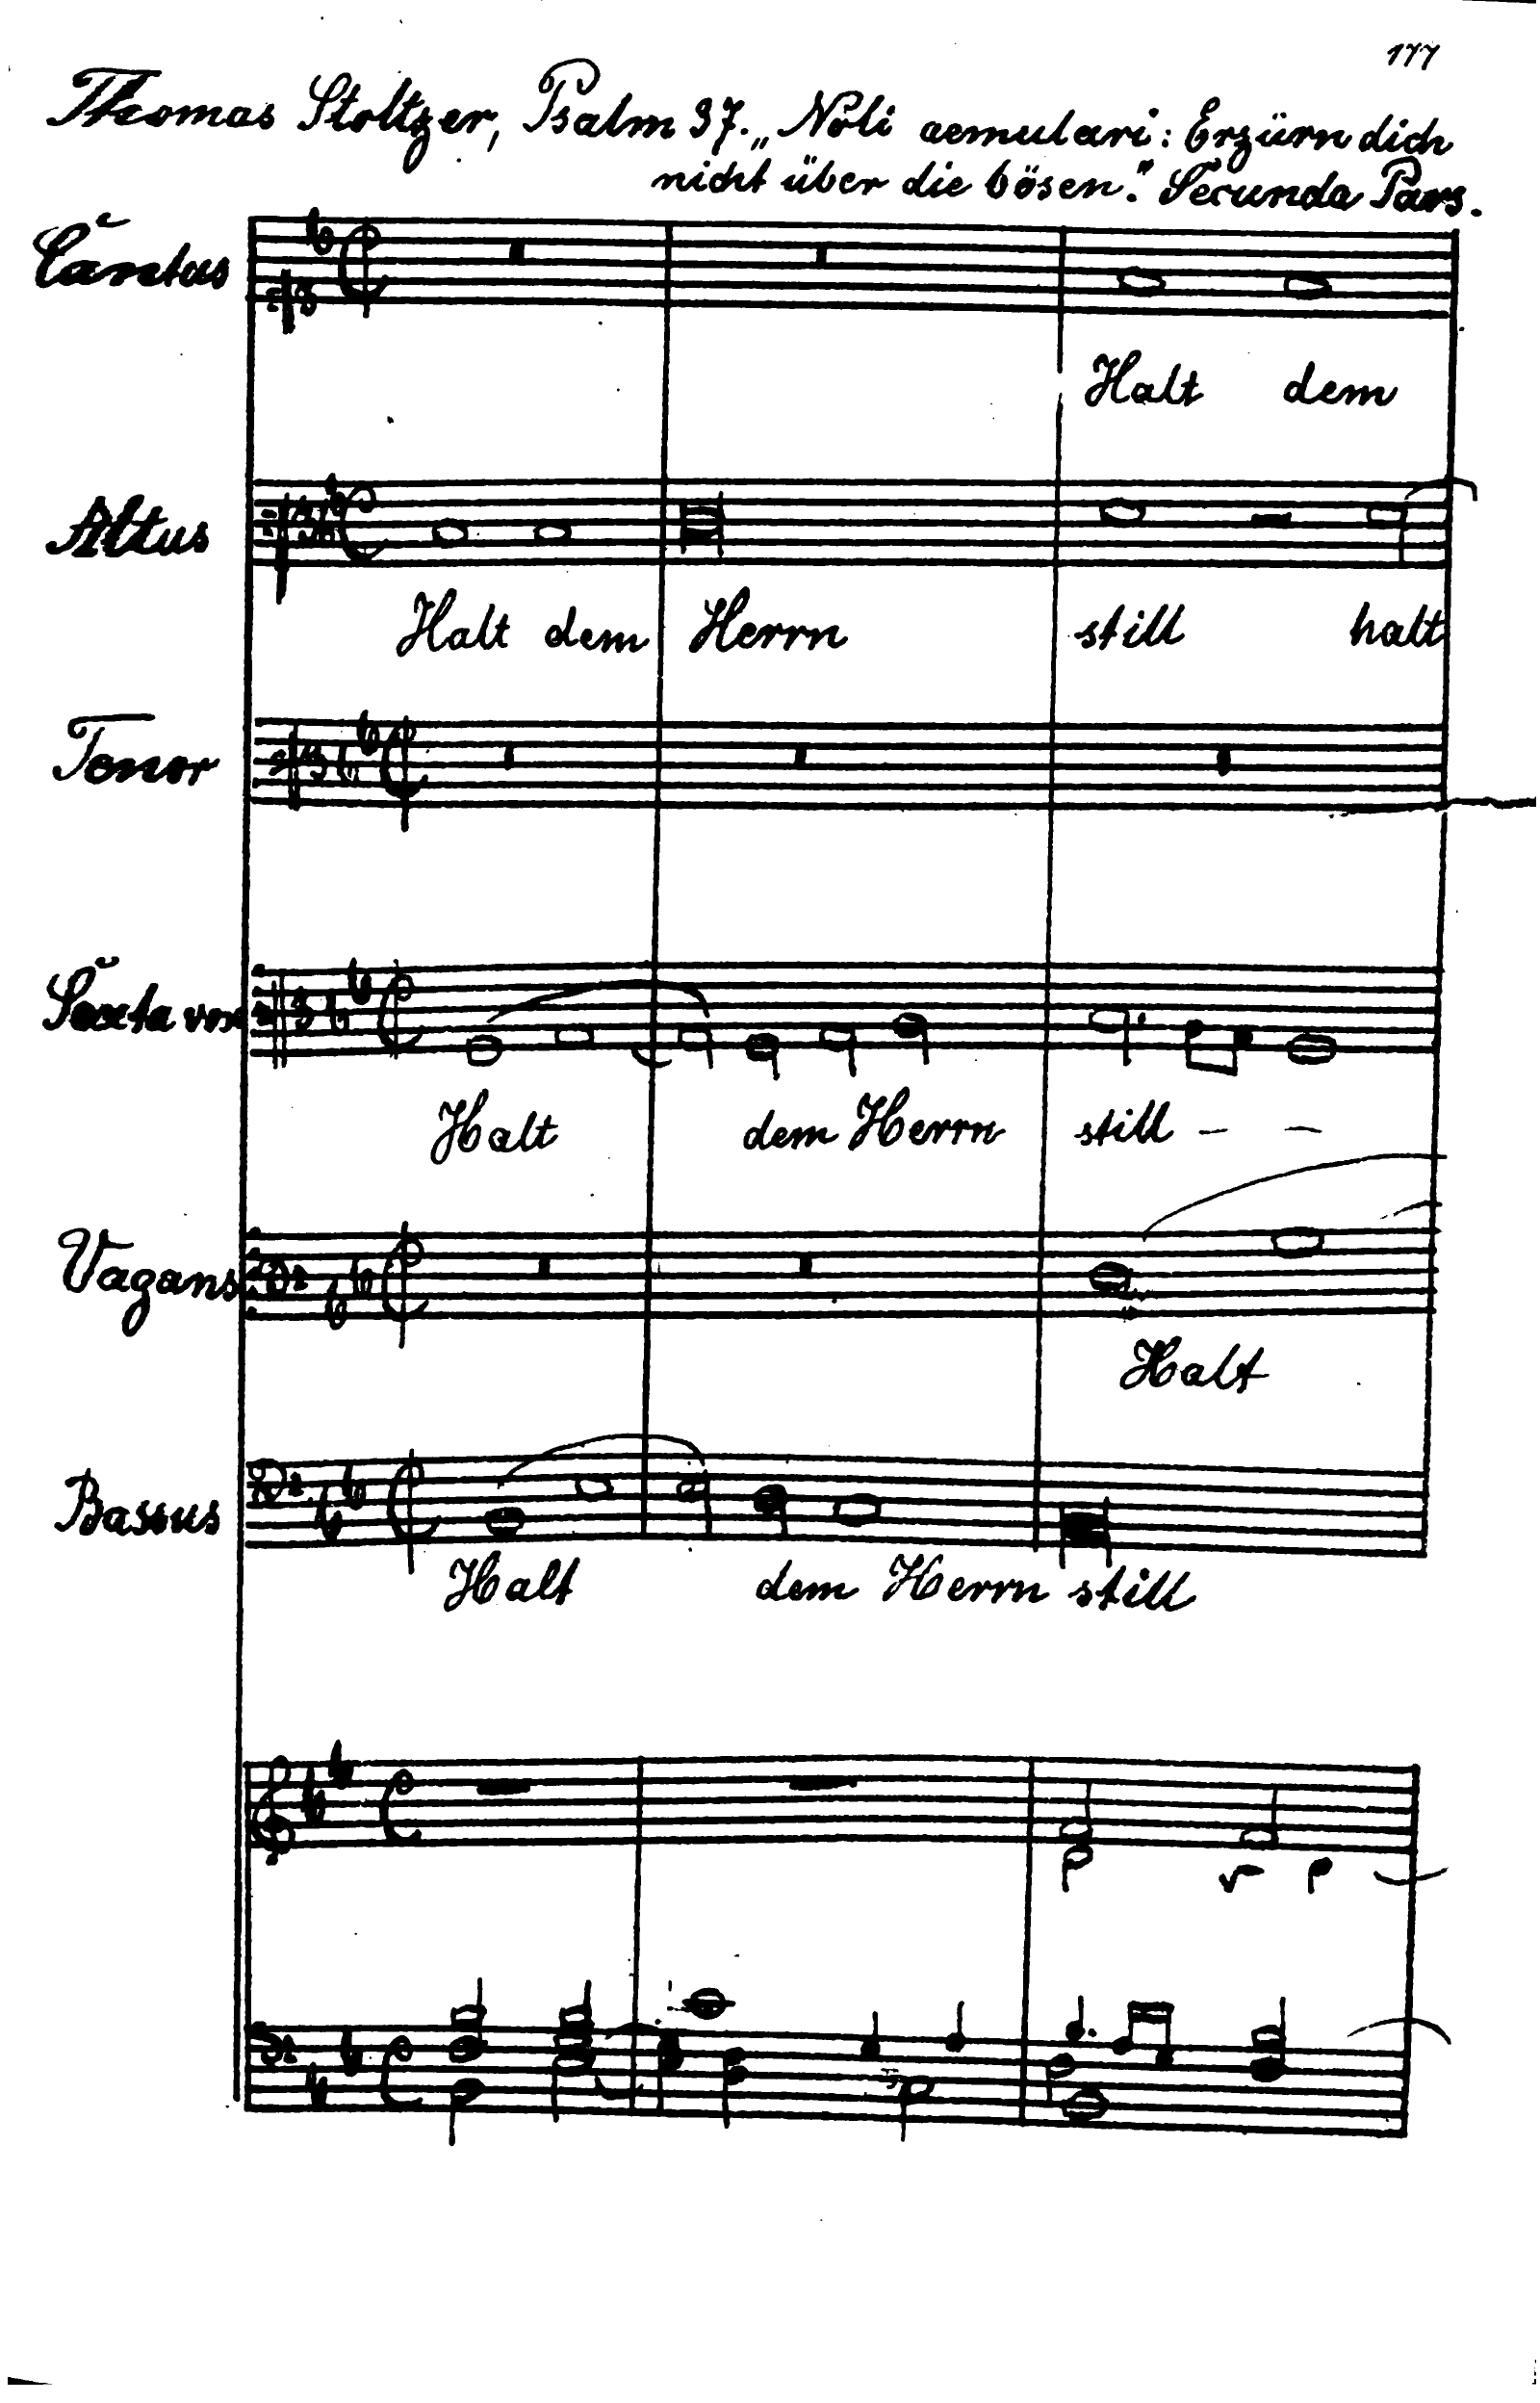 177
Thomas Stoltzer, Psalm 37. „Noli aemulari: Erzürn dich
nicht über die bösen." Secunda Pars.
Cantus
Halt dem
Altus
Halt dem Herrn still halt
Tenor
Sexta vox
Halt dem Herrn still - -
Vagans
Halt
Bassus
Halt dem Herrn still